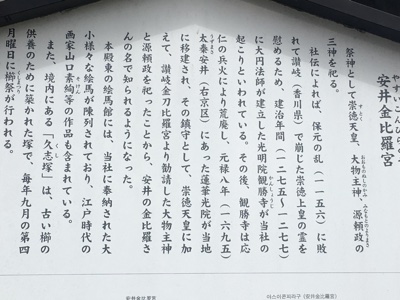 やすいこんぴらぐう
安井金比羅宮
祭神として崇徳天皇、大物主神、源頼政の
すとく
おおものぬしのかみ
みなもとのよりまさ
三神を祀る。
社伝によれば、保元の乱（一一五六）に敗
れて讃岐（香川県）で崩じた崇徳上皇の霊を
慰めるため、建治年間（一二七五〜一二七七）
に大円法師が建立した光明院観勝寺が当社の
かんしょうじ
起こりといわれている。その後、観勝寺は応
仁の兵火により荒廃し、元禄八年（一六九五）
太秦安井（右京区）にあった蓮華光院が当地
うずまさ
に移建され、その鎮守として、崇徳天皇に加
えて、讃岐金刀比羅宮より勧請した大物主神
と源頼政を祀ったことから、安井の金比羅さ
んの名で知られるようになった。
本殿東の絵馬館には、当社に奉納された大
小様々な絵馬が陳列されており、江戸時代の
画家山口素絢等の作品も含まれている。
そけん
また、境内にある「久志塚」は、古い櫛の
供養のために築かれた塚で、毎年九月の第四
月曜日に櫛祭が行われる。
安井金比羅宮
야스이콘피라구（安井金比羅宮）